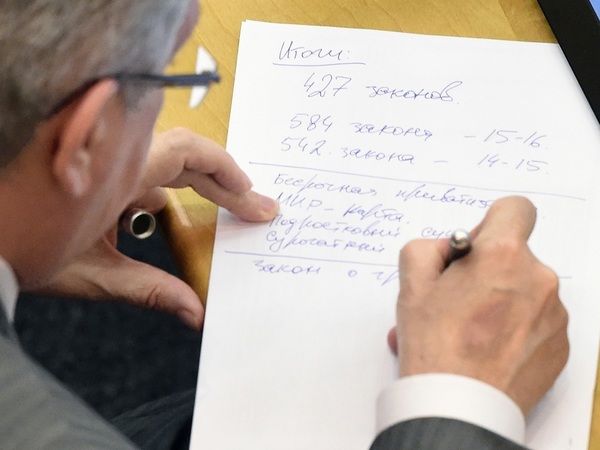 Итоги:
427 законов.
584 закона - 15-16.
542 закона - 14-15.
Бесрочная приватиз
МИР - карта.
Подростковый су
Сурогатный
Закон о гр